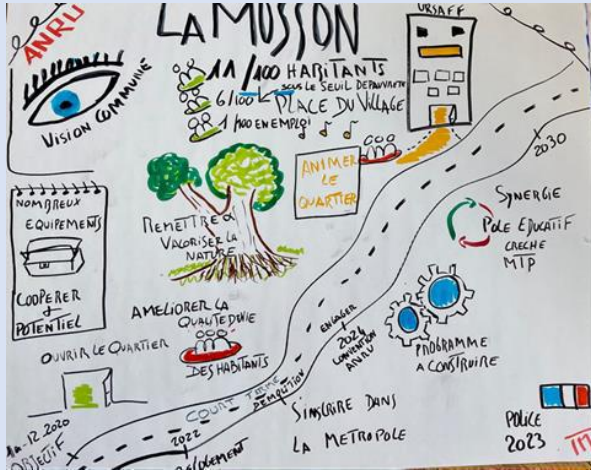 ANRU
VISION COMMUNE
LA MOSSON
11/100 HABITANTS
SOUS LE SEUIL DE PAUVRETE
6/100 PLACE DU VILLAGE
1/100 EN EMPLOI
URSAFF
ANIMER
LE
QUARTIER
2030
NOMBREUX
EQUIPEMENTS
COOPERER
POTENTIEL
REMETTRE &
VALORISER LA
NATURE
SYNERGIE
POLE EDUCATIF
CRECHE
MTP
AMELIORER LA
QUALITE DE VIE
DES HABITANTS
OUVRIR LE QUARTIER
ENGAGER
2024
CONVENTION
ANRU
PROGRAMME
A CONSTRUIRE
COURT TERME
DEMOLITION
S'INSCRIRE DANS
LA METROPOLE
POLICE
2023
12.2020
OBJECTIF
2022
RELOGEMENT